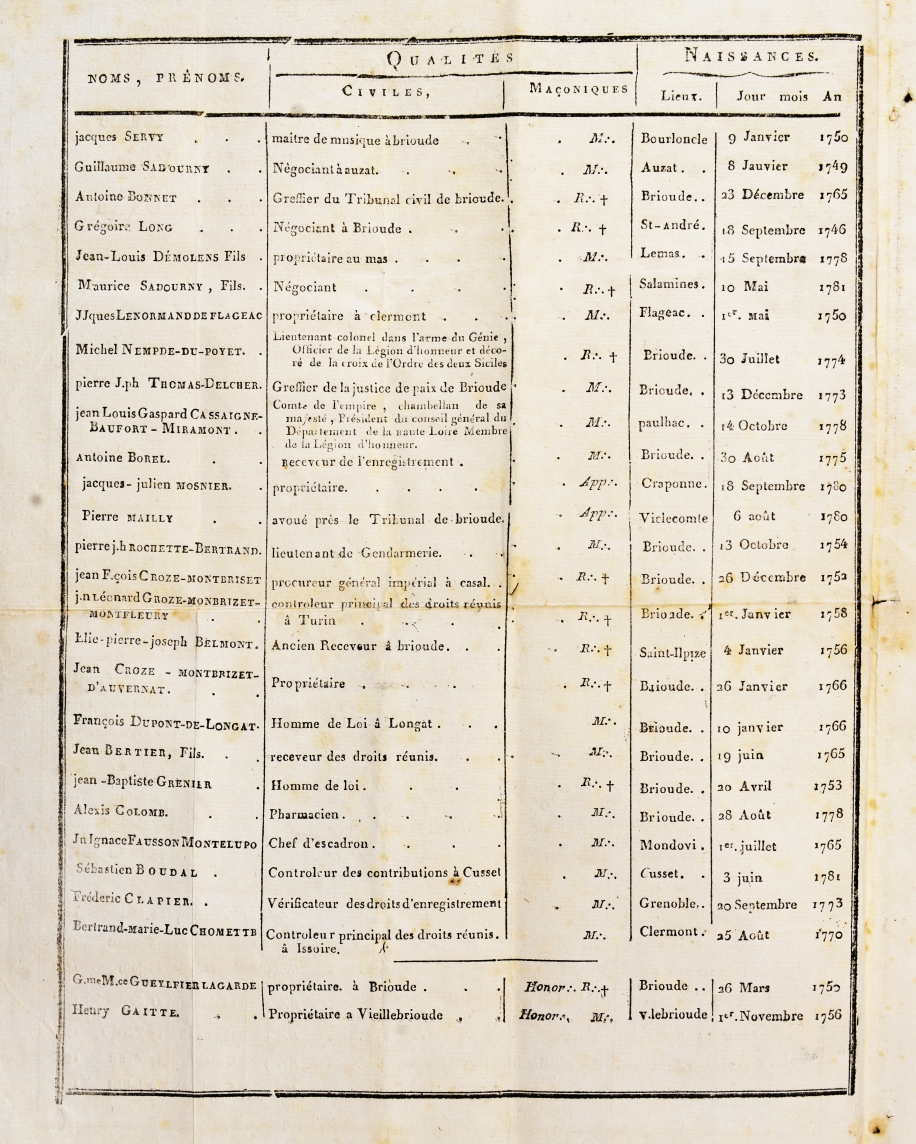 NOMS, PRÉNOMS.
QUALITÉS
CIVILES,
MAÇONIQUES
NAISSANCES.
Lieux. Jour mois An
jacques SERVY . . . maitre de musique àbrioude . . . M∴. Bourloncle 9 Janvier 1750
Guillaume SADOURNY . . Négociant à auzat. . . . . M∴. Auzat. . 8 Jauvier 1749
Antoine BONNET . . . Greffier du Tribunal civil de brioude. . R∴ † Brioude. . 23 Décembre 1765
Grégoire LONG . . . Négociant à Brioude . . . . R∴ † St-André. 18 Septembre 1746
Jean-Louis DÉMOLENS Fils . propriétaire au mas . . . . . M∴. Lemas. . 15 Septembre 1778
Maurice SADOURNY, Fils. . Négociant . . . . . R∴ † Salamines. 10 Mai 1781
JJques LENORMAND DE FLAGEAC propriétaire à clermont . . . . M∴. Flageac. . 1er. mai 1750
Lieutenant-colonel dans l'arme du Génie,
Michel NEMPDE-DU-POYET. . Officier de la Légion d'honneur et déco- . R∴ † Brioude. . 30 Juillet 1774
ré de la croix de l'Ordre des deux Siciles
pierre J.ph THOMAS-DELCHER. Greffier de la justice de paix de Brioude . M∴. Brioude. . 13 Décembre 1773
Comte de l'empire, chambellan de sa
jean Louis Gaspard CASSAIGNE- majesté, Président du conseil général du
BAUFORT-MIRAMONT. . Département de la haute Loire Membre . M∴. paulhac. . 14 Octobre 1778
de la Légion d'honneur.
Antoine BOREL. . . Receveur de l'enregistrement . . M∴. Brioude. . 30 Août 1775
jacques-julien MOSNIER. . propriétaire. . . . . . App∴. Craponne. 18 Septembre 1780
Pierre MAILLY . . avoué près le Tribunal de brioude. . App∴. Viclecomte 6 août 1780
pierre j.h ROCHETTE-BERTRAND. lieutenant de Gendarmerie. . . . M∴. Brioude. . 13 Octobre 1754
jean F.çois CROZE-MONTBRISET procureur général impérial à casal. . . R∴ † Brioude. . 26 Décembre 1752
j.n Léonard GROZE-MONBRIZET- controleur principal des droits réunis
MONTFLEURY . . à Turin . . . . . R∴ † Brioude. . 1er. Janvier 1758
Elie-pierre-joseph BELMONT. Ancien Receveur à brioude. . . . R∴ † Saint-Ilpize 4 Janvier 1756
Jean CROZE-MONTBRIZET-
D'AUVERNAT. . . Propriétaire . . . . . R∴ † Brioude. . 26 Janvier 1766
François DUPONT-DE-LONGAT. Homme de Loi à Longat . . . M∴. Brioude. . 10 janvier 1766
Jean BERTIER, Fils. . . receveur des droits réunis. . . . M∴. Brioude. . 19 juin 1765
jean-Baptiste GRENIER . Homme de loi. . . . . R∴ † Brioude. . 20 Avril 1753
Alexis COLOMB. . . Pharmacien. . . . . M∴. Brioude. . 28 Août 1778
Jn Ignace FAUSSON MONTELUPO Chef d'escadron. . . . . M∴. Mondovi. . 1er. juillet 1765
Sébastien BOUDAL . Controleur des contributions à Cusset . M∴. Cusset. . 3 juin 1781
Fréderic CLAPIER. . Vérificateur des droits d'enregistrement . M∴. Grenoble. . 20 Septembre 1773
Bertrand-Marie-Luc CHOMETTE Controleur principal des droits réunis. M∴. Clermont. . 25 Août 1770
à Issoire.
G.me M.ce GUEYLFIER LAGARDE propriétaire. à Brioude . . . Honor∴. R∴ † Brioude . . 26 Mars 1750
Henry GAITTE. . . Propriétaire a Vieillebrioude . . Honor∴. M∴. v.lebrioude 1er. Novembre 1756